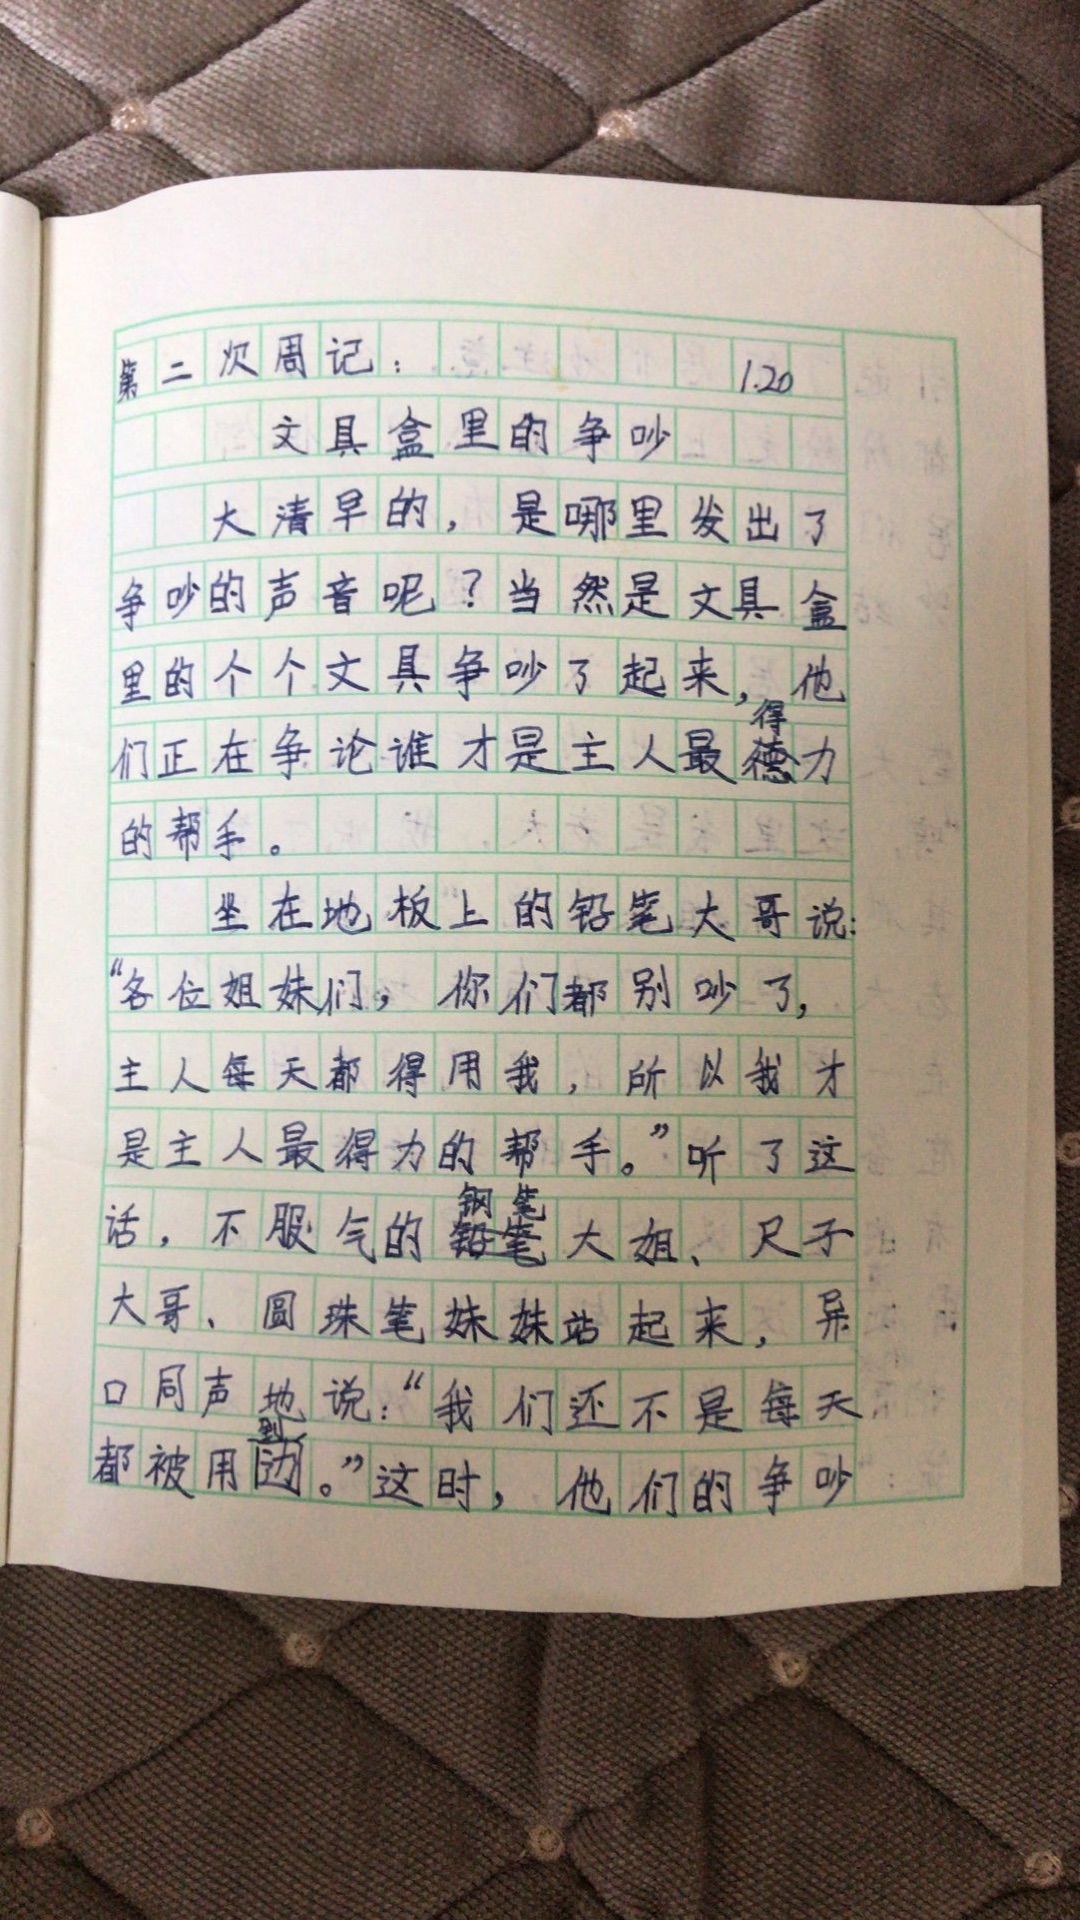 第二次周记： 1.20
文具盒里的争吵
大清早的，是哪里发出了
争吵的声音呢？当然是文具盒
里的个个文具争吵了起来，他
得
们正在争论谁才是主人最德力
的帮手。
坐在地板上的铅笔大哥说：
“各位姐妹们，你们都别吵了，
主人每天都得用我，所以我才
是主人最得力的帮手。”听了这
钢笔
话，不服气的铅笔大姐、尺子
大哥、圆珠笔妹妹站起来，异
口同声地说：“我们还不是每天
到
都被用边。”这时，他们的争吵